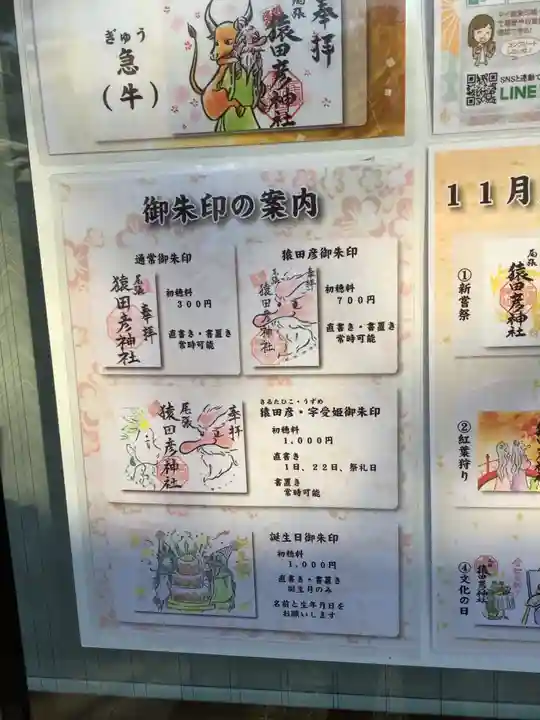 ぎゅう
急
(牛)
奉拝
尾張
猿田彦神社
SNSと連動で
LINE
御朱印の案内
通常御朱印
尾張
奉拝
猿田彦神社
初穂料
300円
直書き・書置き
常時可能
猿田彦御朱印
奉拝
猿田彦神社
初穂料
700円
直書き・書置き
常時可能
奉拝
尾張
猿田彦神社
さるたひこ・うずめ
猿田彦・宇受姫御朱印
初穂料
1,000円
直書き
1日、22日、祭礼日
書置き
常時可能
誕生日御朱印
初穂料
1,000円
直書き・書置き
誕生月のみ
名前と生年月日を
お願いします
11月
①新嘗祭
猿田彦神社
②紅葉狩り
④文化の日
猿田彦神社